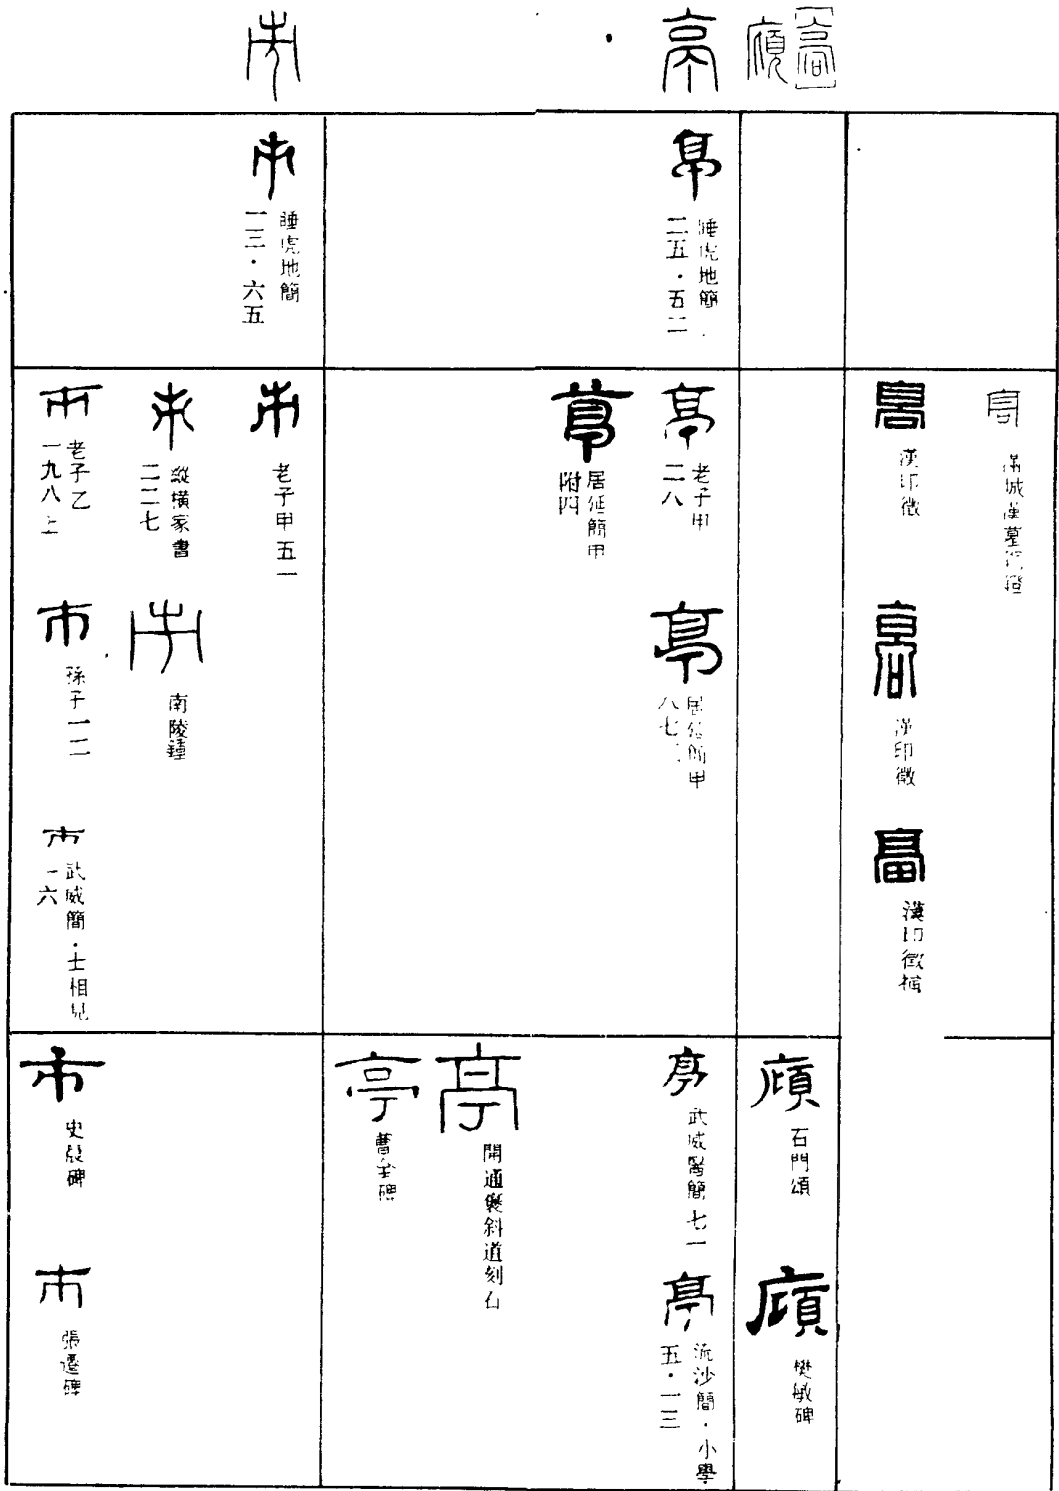 高
廎
亭
市
滿城漢墓
漢印徵
漢印徵
漢印徵補
廎
石門頌
廎
樊敏碑
亭
睡虎地簡
二五·五二
亭
老子甲
二八
亭
居延簡甲
附四
亭
居延簡甲
八七
亭
武威醫簡七一
亭
流沙簡·小學
五·一三
亭
開通褒斜道刻石
亭
曹全碑
市
睡虎地簡
一三·六五
市
老子甲五一
市
縱橫家書
二二七
市
南陵鍾
市
老子乙
一九八上
市
孫子一一二
市
武威簡·士相見
一六
市
史晨碑
市
張遷碑